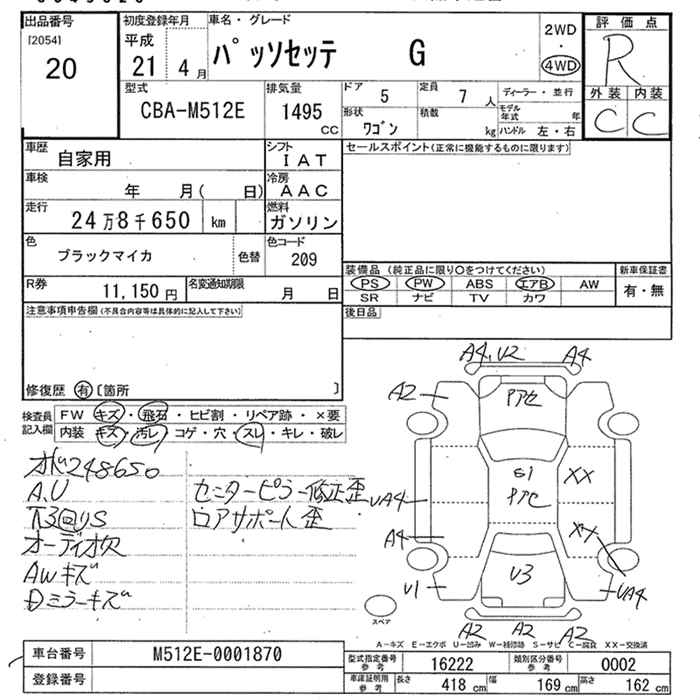 出品番号
[2054]
20
初度登録年月
平成
21年 4月
車名・グレード
パッソセッテ G
2WD
・
4WD
評価点
R
外装 内装
C C
型式
CBA-M512E
排気量
1495
CC
ドア
5
定員
7 人
ディーラー・並行
形状
ワゴン
積数
kg
モデル年式 年
ハンドル 左・右
車歴
自家用
シフト
IAT
セールスポイント(正常に機能するものに限ります)
車検
年 月( 日)
冷房
AAC
走行
24万8千650 km
燃料
ガソリン
色
ブラックマイカ
色替
色コード
209
装備品 (純正品に限り〇をつけてください)
新車保証書
PS PW ABS エアB AW
有・無
SR ナビ TV カワ
R券
11,150 円
名変通知期限
月 日
後日品
注意事項申告欄(不具合内容等は具体的に記入して下さい)
修復歴 有 [箇所 ]
検査員
記入欄
FW キズ・飛石・ヒビ割・リペア跡・×要
内装 キズ・汚レ・コゲ・穴・スレ・キレ・破レ
248650
A.U
オーディオ欠
AWキズ
ミラーキズ
センターピラー修正歪
ロアサポート歪
A4,U2
A4
A2
UA4
A4
U1
XX
U3
UA4
A2
A2
A2
スペア
A-キズ E-エクボ U-凹み W-補修跡 S-サビ C-腐食 XX-交換済
車台番号
M512E-0001870
登録番号
型式指定番号
参考
16222
類別区分番号
参考
0002
車庫証明用
参考
長さ 418 cm
幅 169 cm
高さ 162 cm